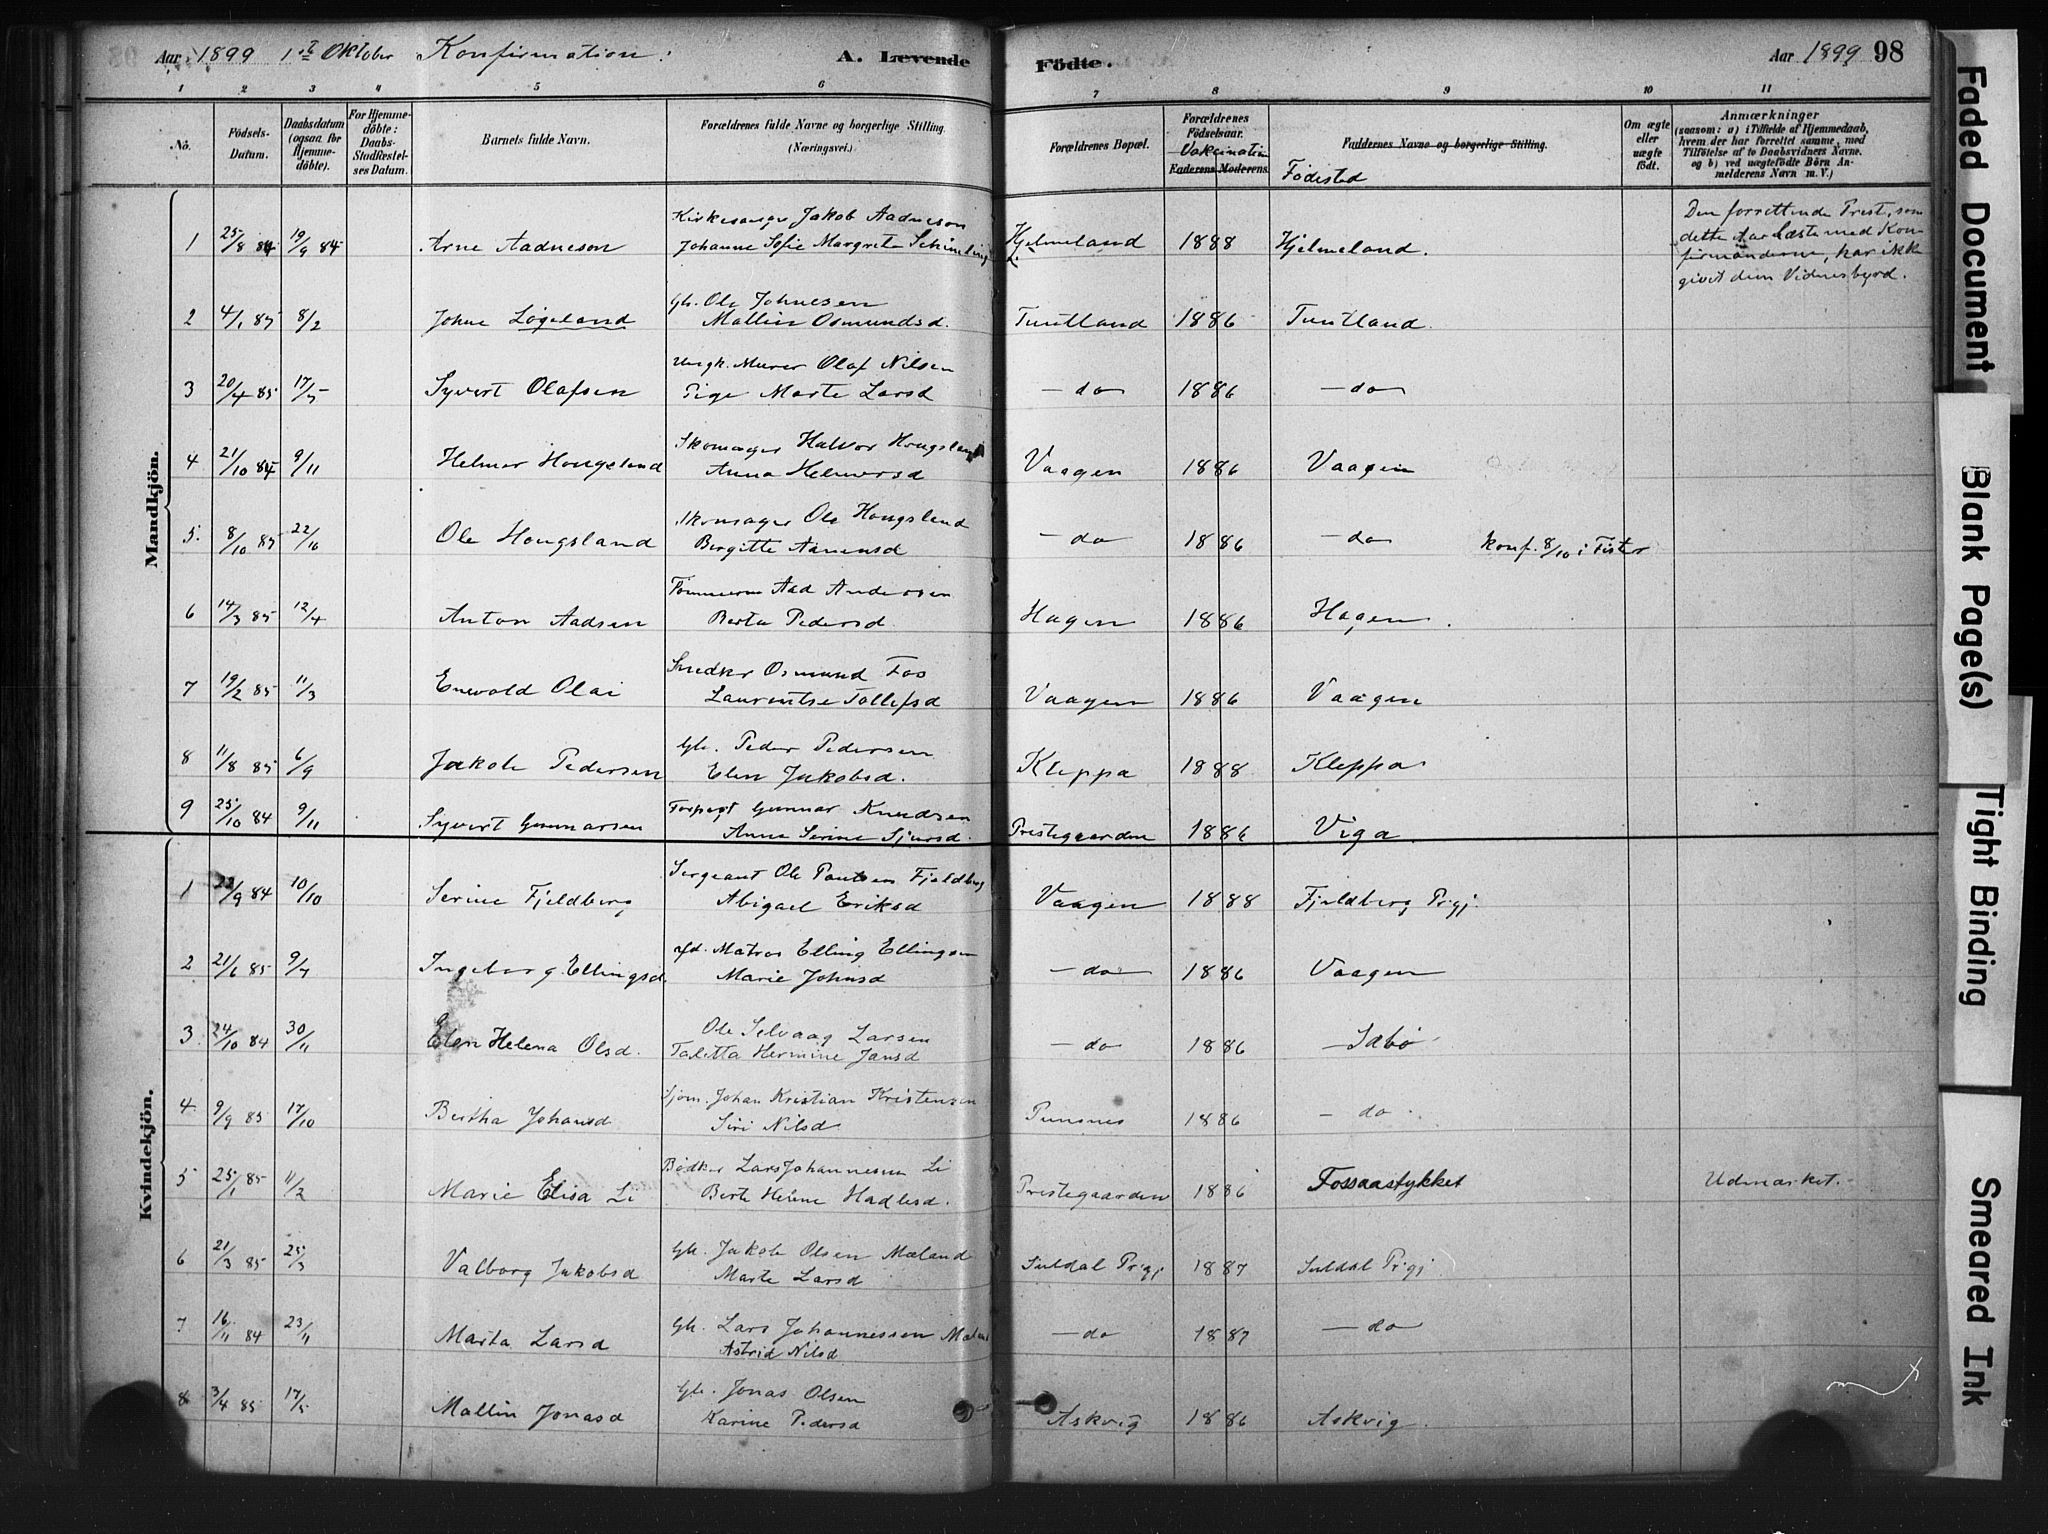 Aar 1899 1ste Oktober Konfirmation: A. Levende Födte. Aar 1899 98
1 2 3 4 5 6 7 8 9 10 11
No. Födsels-Datum. Daabsdatum (ogsaa for Hjemmedöbte). For Hjemmedöbte: Daabs-Stadfæstelses Datum. Barnets fulde Navn. Forældrenes fulde Navne og borgerlige Stilling. (Næringsvei.) Forældrenes Bopæl. Forældrenes Födselsaar. Vakcination Faderens Moderens. Faddernes Navne og borgerlige Stilling. Födested Om ægte eller uægte födt. Anmærkninger (saasom: a) i Tilfælde af Hjemmedaab, hvem der har forrettet samme, med Tilföielse af to Daabsvidners Navne, og b) ved uægtefödte Börn Anmelderens Navn m. V.)
Mandkjön.
1 25/8 84 19/9 84 Arne Aadneson Kirkesanger Jakob Aadneson Hjelmeland 1888 Hjelmeland. Den forrettende Prest, som
Johanne Sofie Margrete Li dette Aar læste med Kon
firmanderne, har ikke
givet dem Vidnesbyrd.
2 4/1 85 8/2 Johne Løgeland Gb. Ole Johnesen Tuntland 1886 Tuntland.
Mallin Osmundsd.
3 20/4 85 17/5 Syvert Olafsen Ungk. Murer Olaf Nilsen - do - 1886 - do -
Pige Marte Larsd
4 21/10 84 9/11 Helmer Hongsland Skomager Halvor Hongsland Vaagen 1886 Vaagen
Anna Helmersd
5. 8/10 85 22/10 Ole Hongsland Skomager Ole Hongsland - do 1886 - do konf. 8/10 i Fister
Birgitte Aanensd
6 14/3 85 12/4 Anton Aadsen Tømmerm Aad Andersen Hagen 1886 Hagen.
Berta Pedersd
7 19/2 85 11/3 Enevold Olai Snedker Osmund Fos Vaagen 1886 Vaagen
Laurentse Tollefsd
8 11/8 85 6/9 Jakob Pedersen Gb. Peder Pedersen Kleppa 1888 Kleppa
Elen Jakobsd.
9 25/10 84 9/11 Syvert Gunnarsen Forpagt Gunnar Knudsen Prestegaarden 1886 Viga
Anne Serine Sjursd.
Kvindekjön.
1 /9 84 10/10 Serine Fjeldberg Sergeant Ole Fjeldberg Vaagen 1888 Fjeldberg Prgj.
Abigael Eriksd
2 21/6 85 9/7 Ingeborg Ellingsd. Matros Elling Ellingsen - do - 1886 Vaagen
Marie Johnsd
3 24/10 84 30/11 Elen Helena Olsd. Ole Selvaag Larsen - do 1886 - Sabø
Taletta Hermine Jansd
4 9/9 85 17/10 Bertha Johansd Sjøm. Johan Kristian Kristensen Pundsnes 1886 - do.
Siri Nilsd
5 25/1 85 11/2 Marie Elisa Li Bødker Lars Johannesen Li Prestegaarden 1886 Fossaastykket Udmærket.
Berte Helene Hadlesd.
6 21/3 85 25/3 Valborg Jakobsd Gb. Jakob Olsen Mæland Suldal Prgj 1887 Suldal Prgj
Marte Larsd
7 16/11 84 23/11 Marta Larsd Gb. Lars Johannessen - do 1887 - do
Astrid Nilsd
8 3/4 85 17/5 Mallin Jonasd Gb. Jonas Olsen Askvig 1886 Askvig.
Karine Pedersd
Faded Document
Blank Page(s)
Tight Binding
Smeared Ink